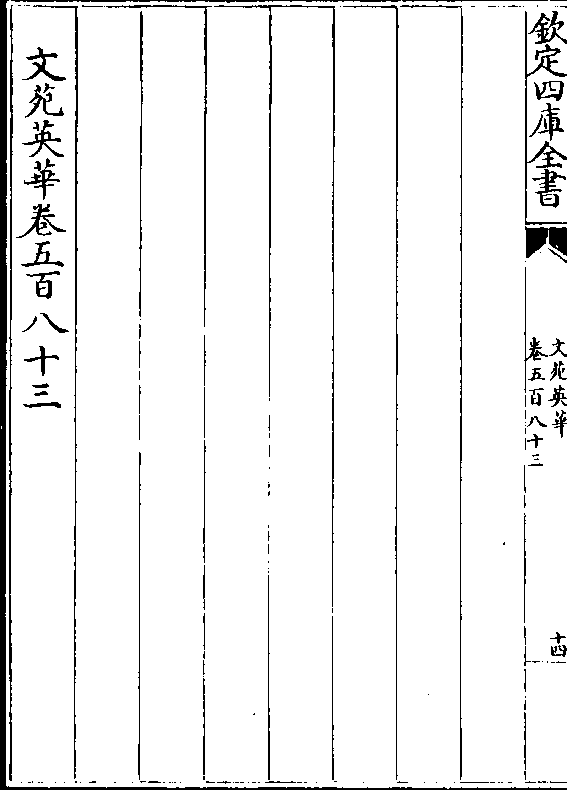 欽定四庫全書
文苑英華
卷五百八十三
十四
文苑英華卷五百八十三